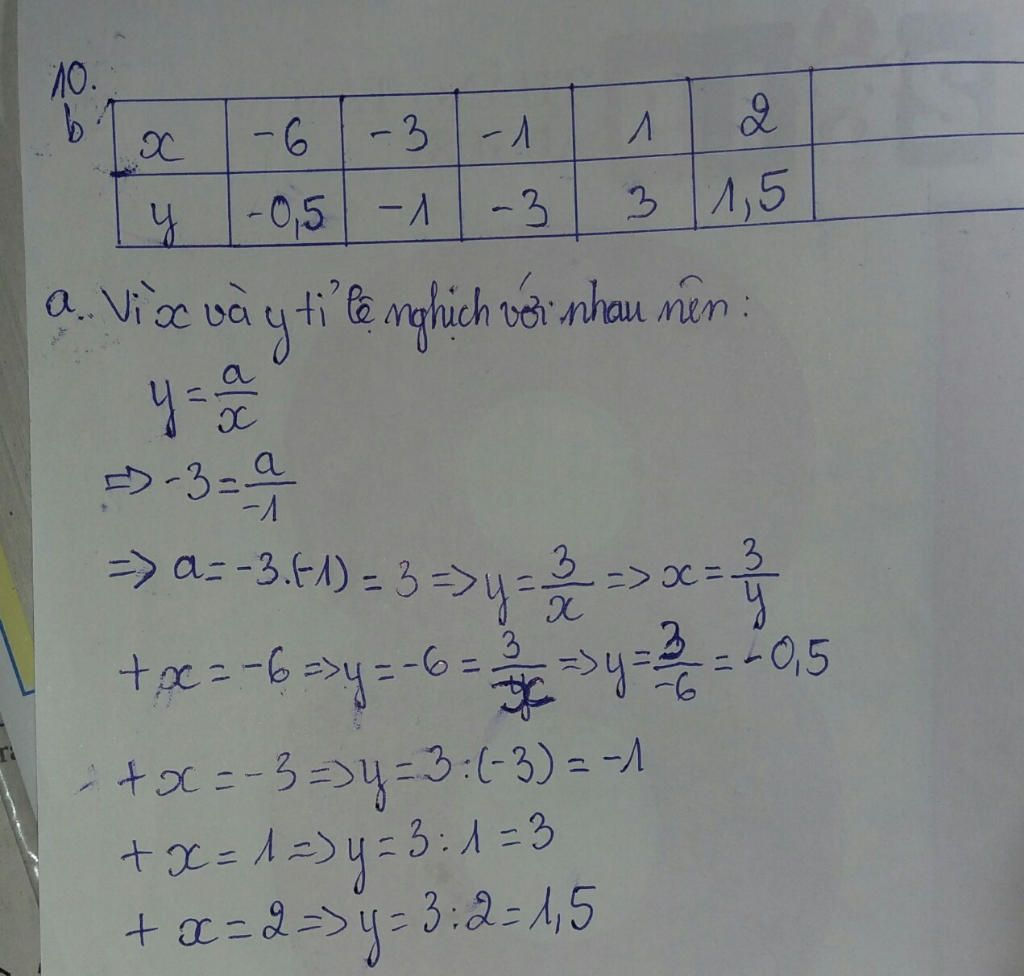 10.
b x -6 -3 -1 1 2
y -0,5 -1 -3 3 1,5
a. Vì x và y tỉ lệ nghịch với nhau nên:
y = a/x
=> -3 = a/-1
=> a = -3.(-1) = 3 => y = 3/x => x = 3/y
+ x = -6 => y = -6 = 3/x => y = 3/-6 = -0,5
+ x = -3 => y = 3:(-3) = -1
+ x = 1 => y = 3:1 = 3
+ x = 2 => y = 3:2 = 1,5